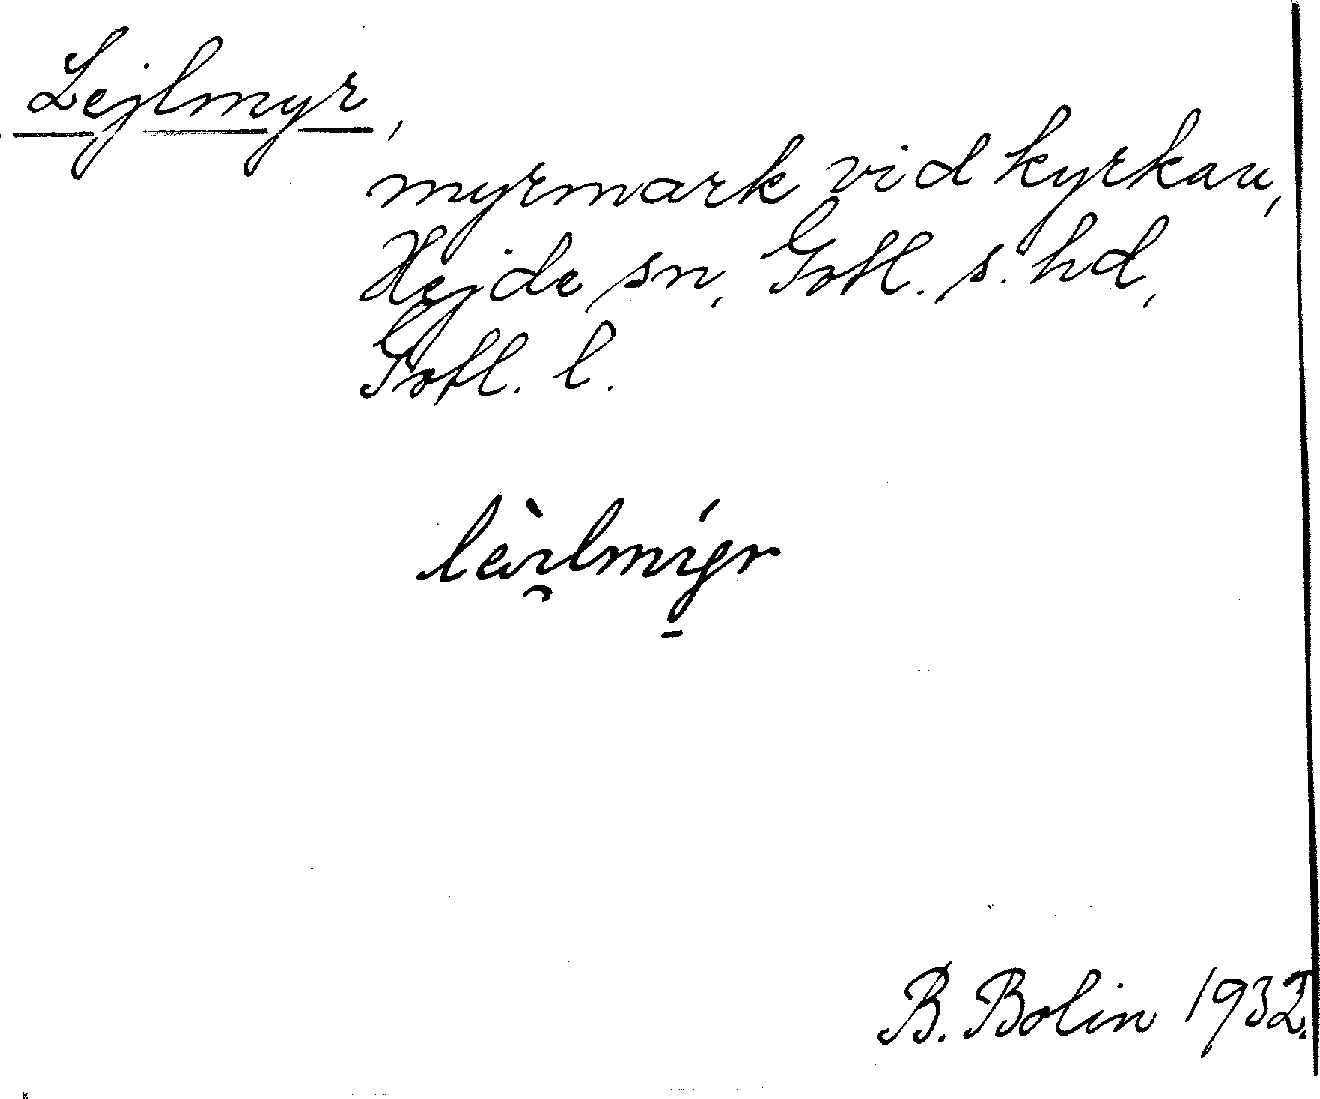 Lejlmyr,
myrmark vid kyrkan,
Hejde sn, Gotl. s. hd,
Gotl. l.
B. Bolin 1932.